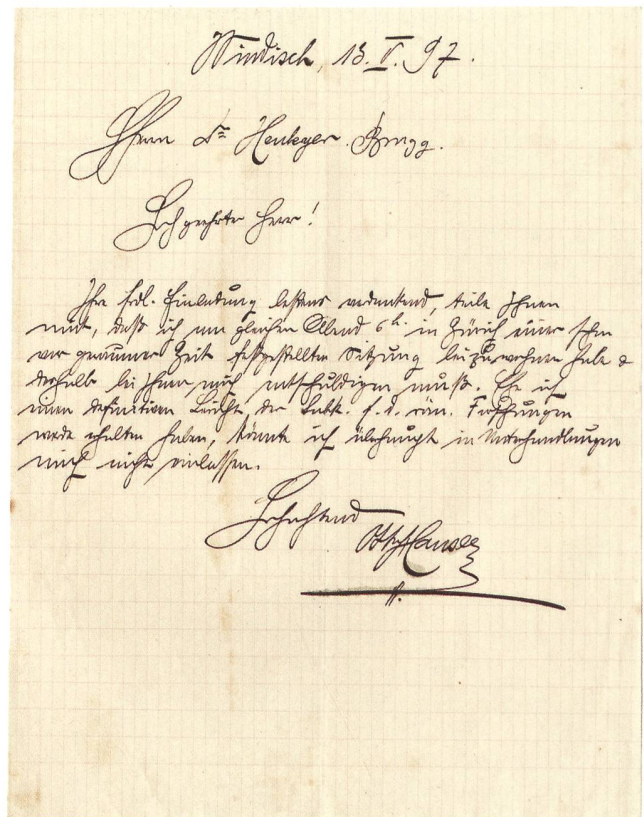 Windisch, 13. V. 97.
Herrn Dr Heuberger. Brugg.
Hochgeehrter Herr!
Ihre frdl. Einladung bestens verdankend, teile Ihnen
mit, daß ich am gleichen Abend 6 h. in Zürich einer schon
vor geraumer Zeit festgestellten Sitzung beizuwohnen habe &
deshalb bei Ihnen mich entschuldigen muß. Ehe ich
einen definitiven Bericht, der f. d. röm. Forschungen
werde erhalten haben, könnte ich überhaupt in Unterhandlungen
mich nicht einlassen.
Hochachtend
Otto Hauser